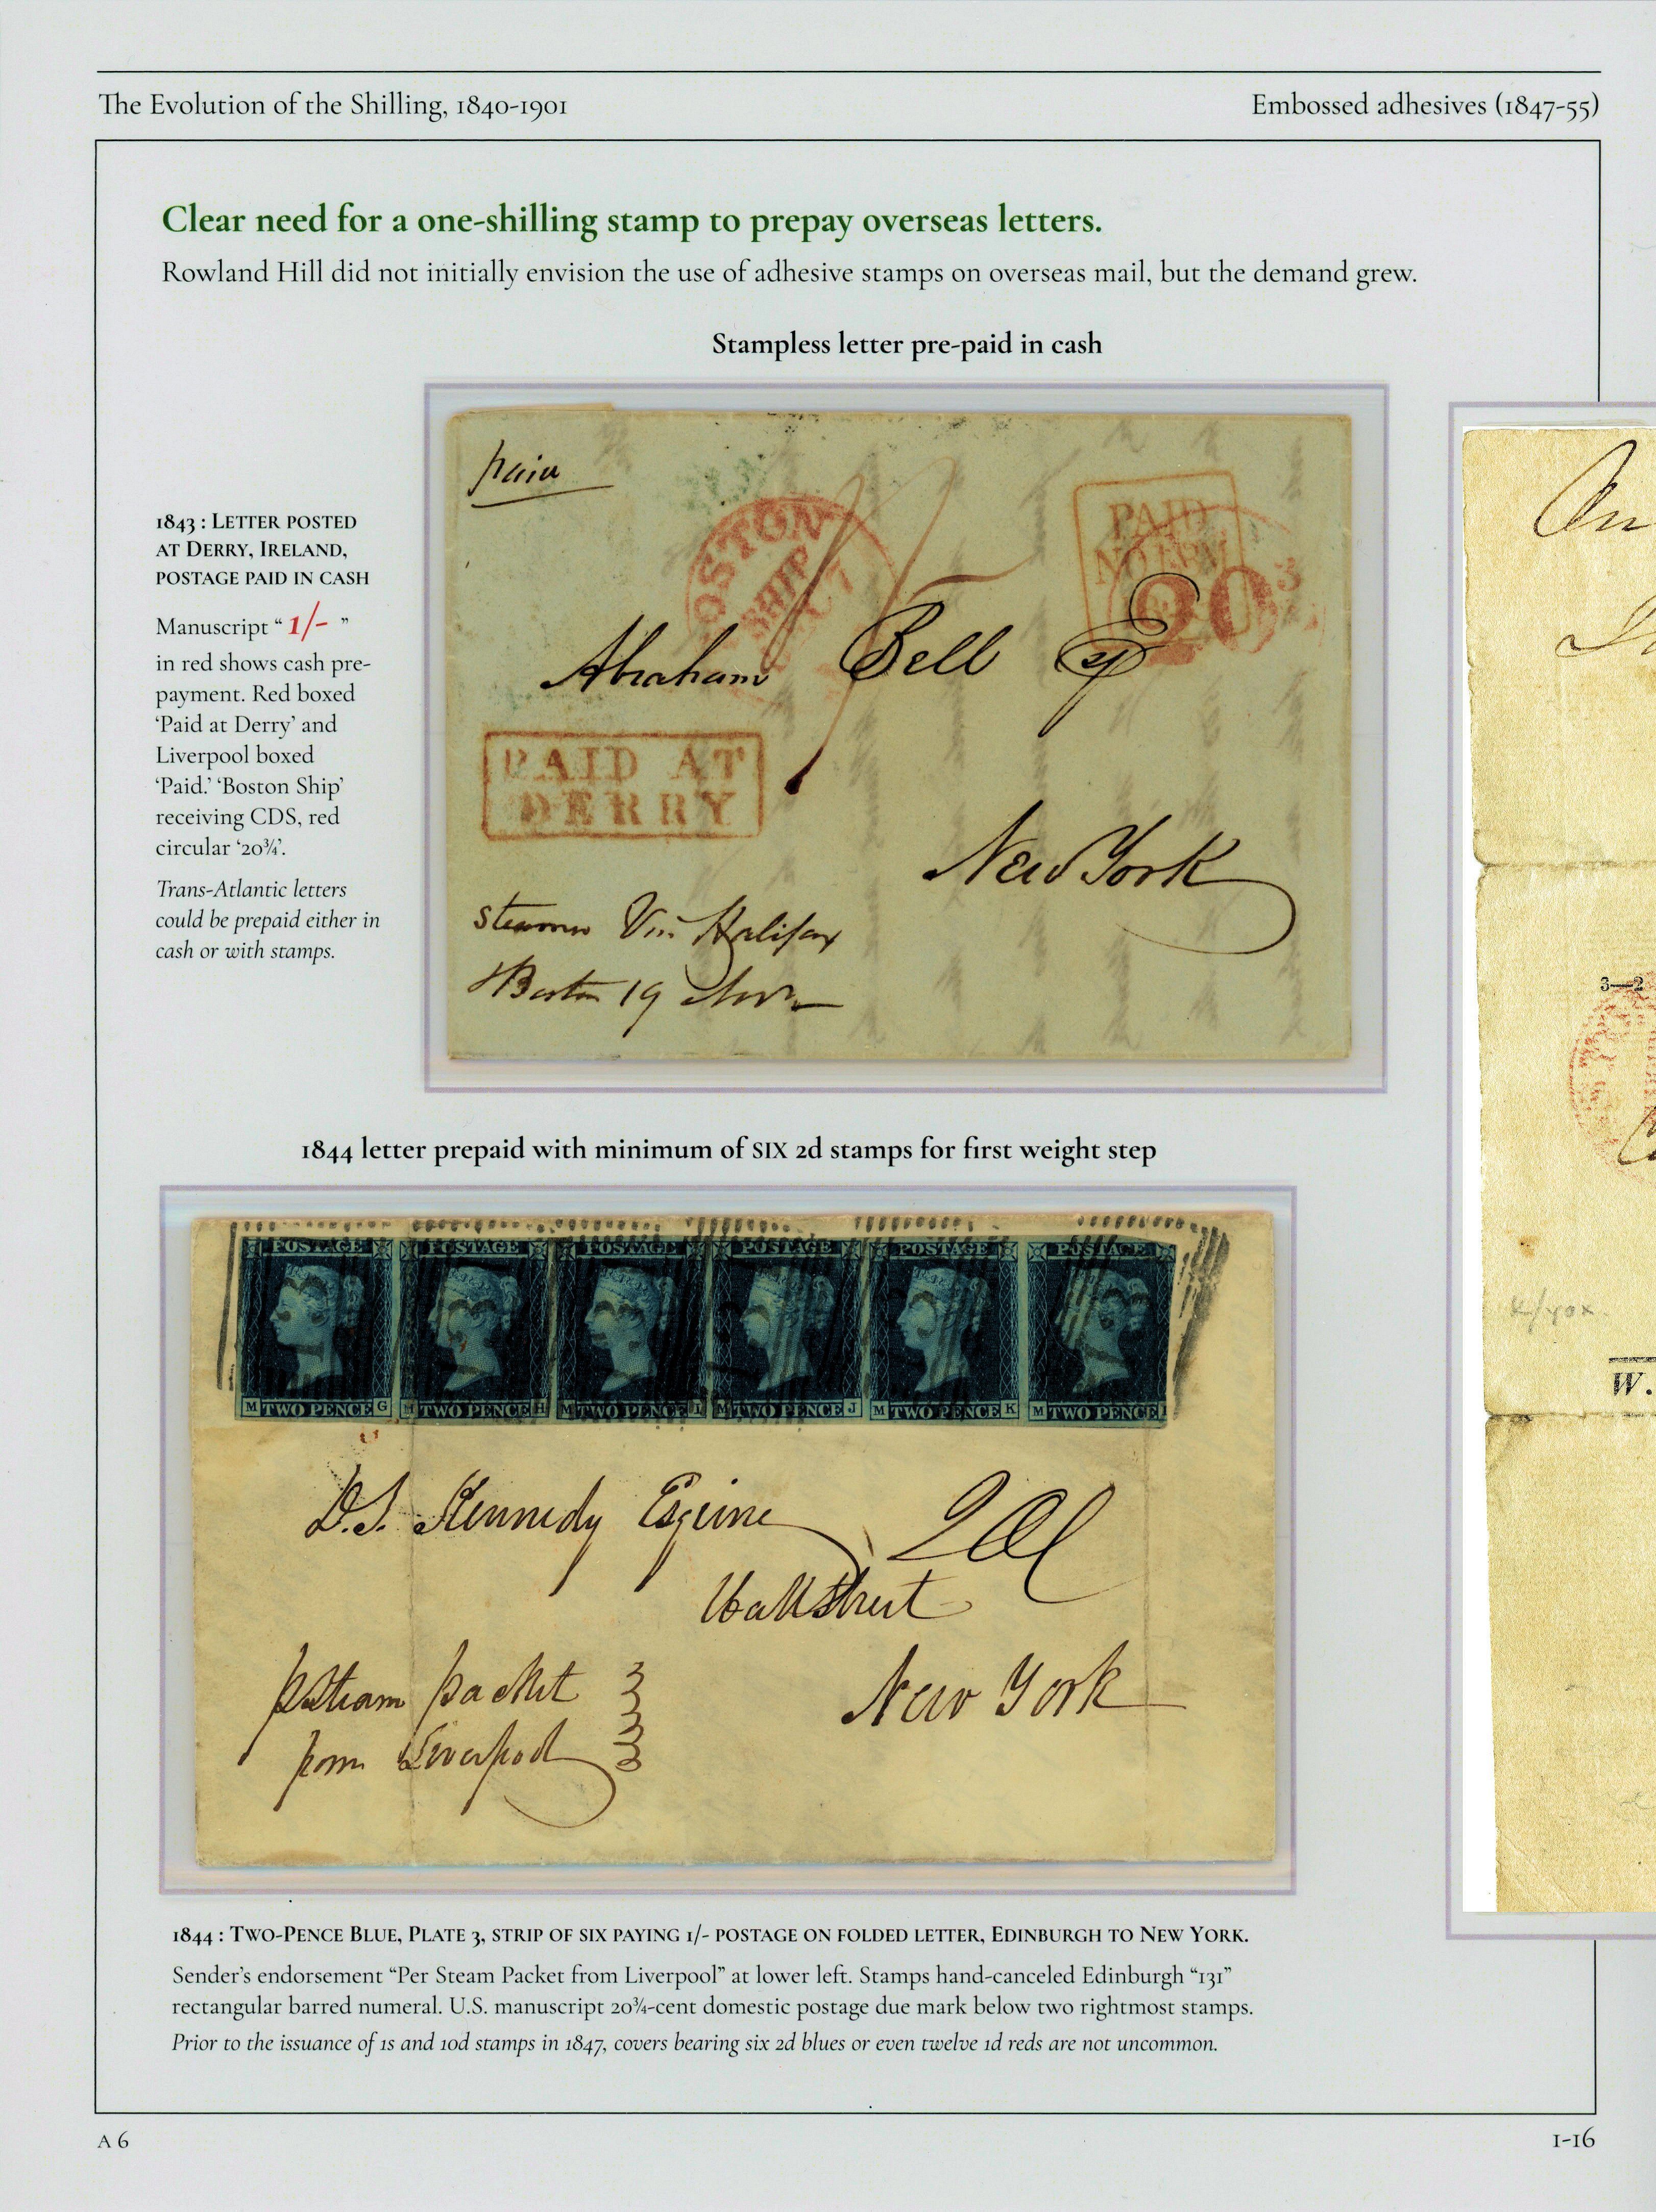 The Evolution of the Shilling, 1840-1901
Embossed adhesives (1847-55)
Clear need for a one-shilling stamp to prepay overseas letters.
Rowland Hill did not initially envision the use of adhesive stamps on overseas mail, but the demand grew.
Stampless letter pre-paid in cash
1843 : LETTER POSTED
AT DERRY, IRELAND,
POSTAGE PAID IN CASH
Manuscript “ 1/- ”
in red shows cash pre-
payment. Red boxed
‘Paid at Derry’ and
Liverpool boxed
‘Paid.’ ‘Boston Ship’
receiving CDS, red
circular ‘20¾’.
Trans-Atlantic letters
could be prepaid either in
cash or with stamps.
paid
OSTON
SHIP
PAID
20
3
Abraham Bell
PAID AT
DERRY
New York
Steamer Via Halifax
Boston 19 Novr
1844 letter prepaid with minimum of SIX 2d stamps for first weight step
POSTAGE POSTAGE POSTAGE POSTAGE POSTAGE POSTAGE
M TWO PENCE G M TWO PENCE H M TWO PENCE I M TWO PENCE J M TWO PENCE K M TWO PENCE
D.S. Kennedy Esquire
Wall Street
New York
p Steam packet
from Liverpool
1844 : TWO-PENCE BLUE, PLATE 3, STRIP OF SIX PAYING 1/- POSTAGE ON FOLDED LETTER, EDINBURGH TO NEW YORK.
Sender’s endorsement “Per Steam Packet from Liverpool” at lower left. Stamps hand-canceled Edinburgh “131”
rectangular barred numeral. U.S. manuscript 20¾-cent domestic postage due mark below two rightmost stamps.
Prior to the issuance of 1s and 10d stamps in 1847, covers bearing six 2d blues or even twelve 1d reds are not uncommon.
A 6
1-16
On
3—2
W.